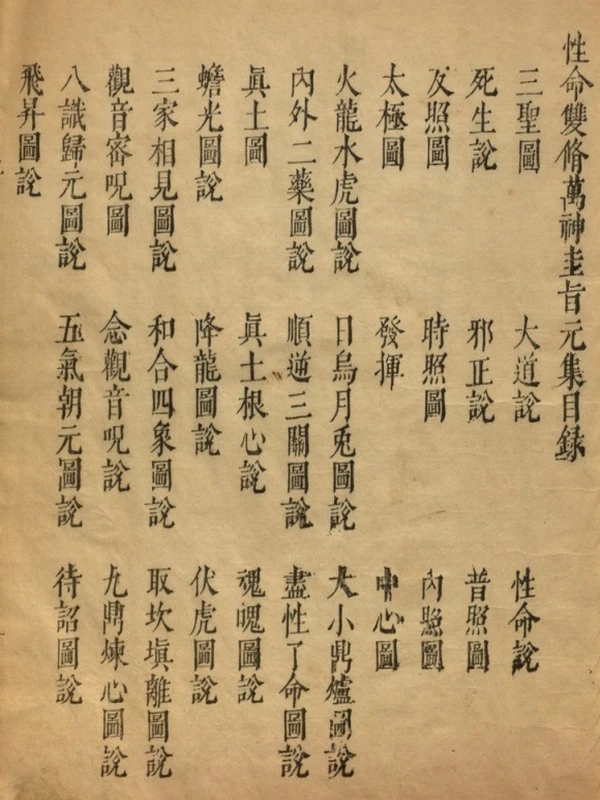 性命雙脩萬神圭旨元集目録
三聖圖 大道說 性命說
死生說 邪正說 普照圖
反照圖 時照圖 內照圖
太極圖 發揮 中心圖
火龍水虎圖說 日烏月兎圖說 大小鼎爐圖說
內外二藥圖說 順逆三關圖說 盡性了命圖說
眞土圖 眞土根心說 魂魄圖說
蟾光圖說 降龍圖說 伏虎圖說
三家相見圖說 和合四象圖說 取坎塡離圖說
觀音密呪圖 念觀音呪說 九鼎煉心圖說
八識歸元圖說 五氣朝元圖說 待詔圖說
飛昇圖說